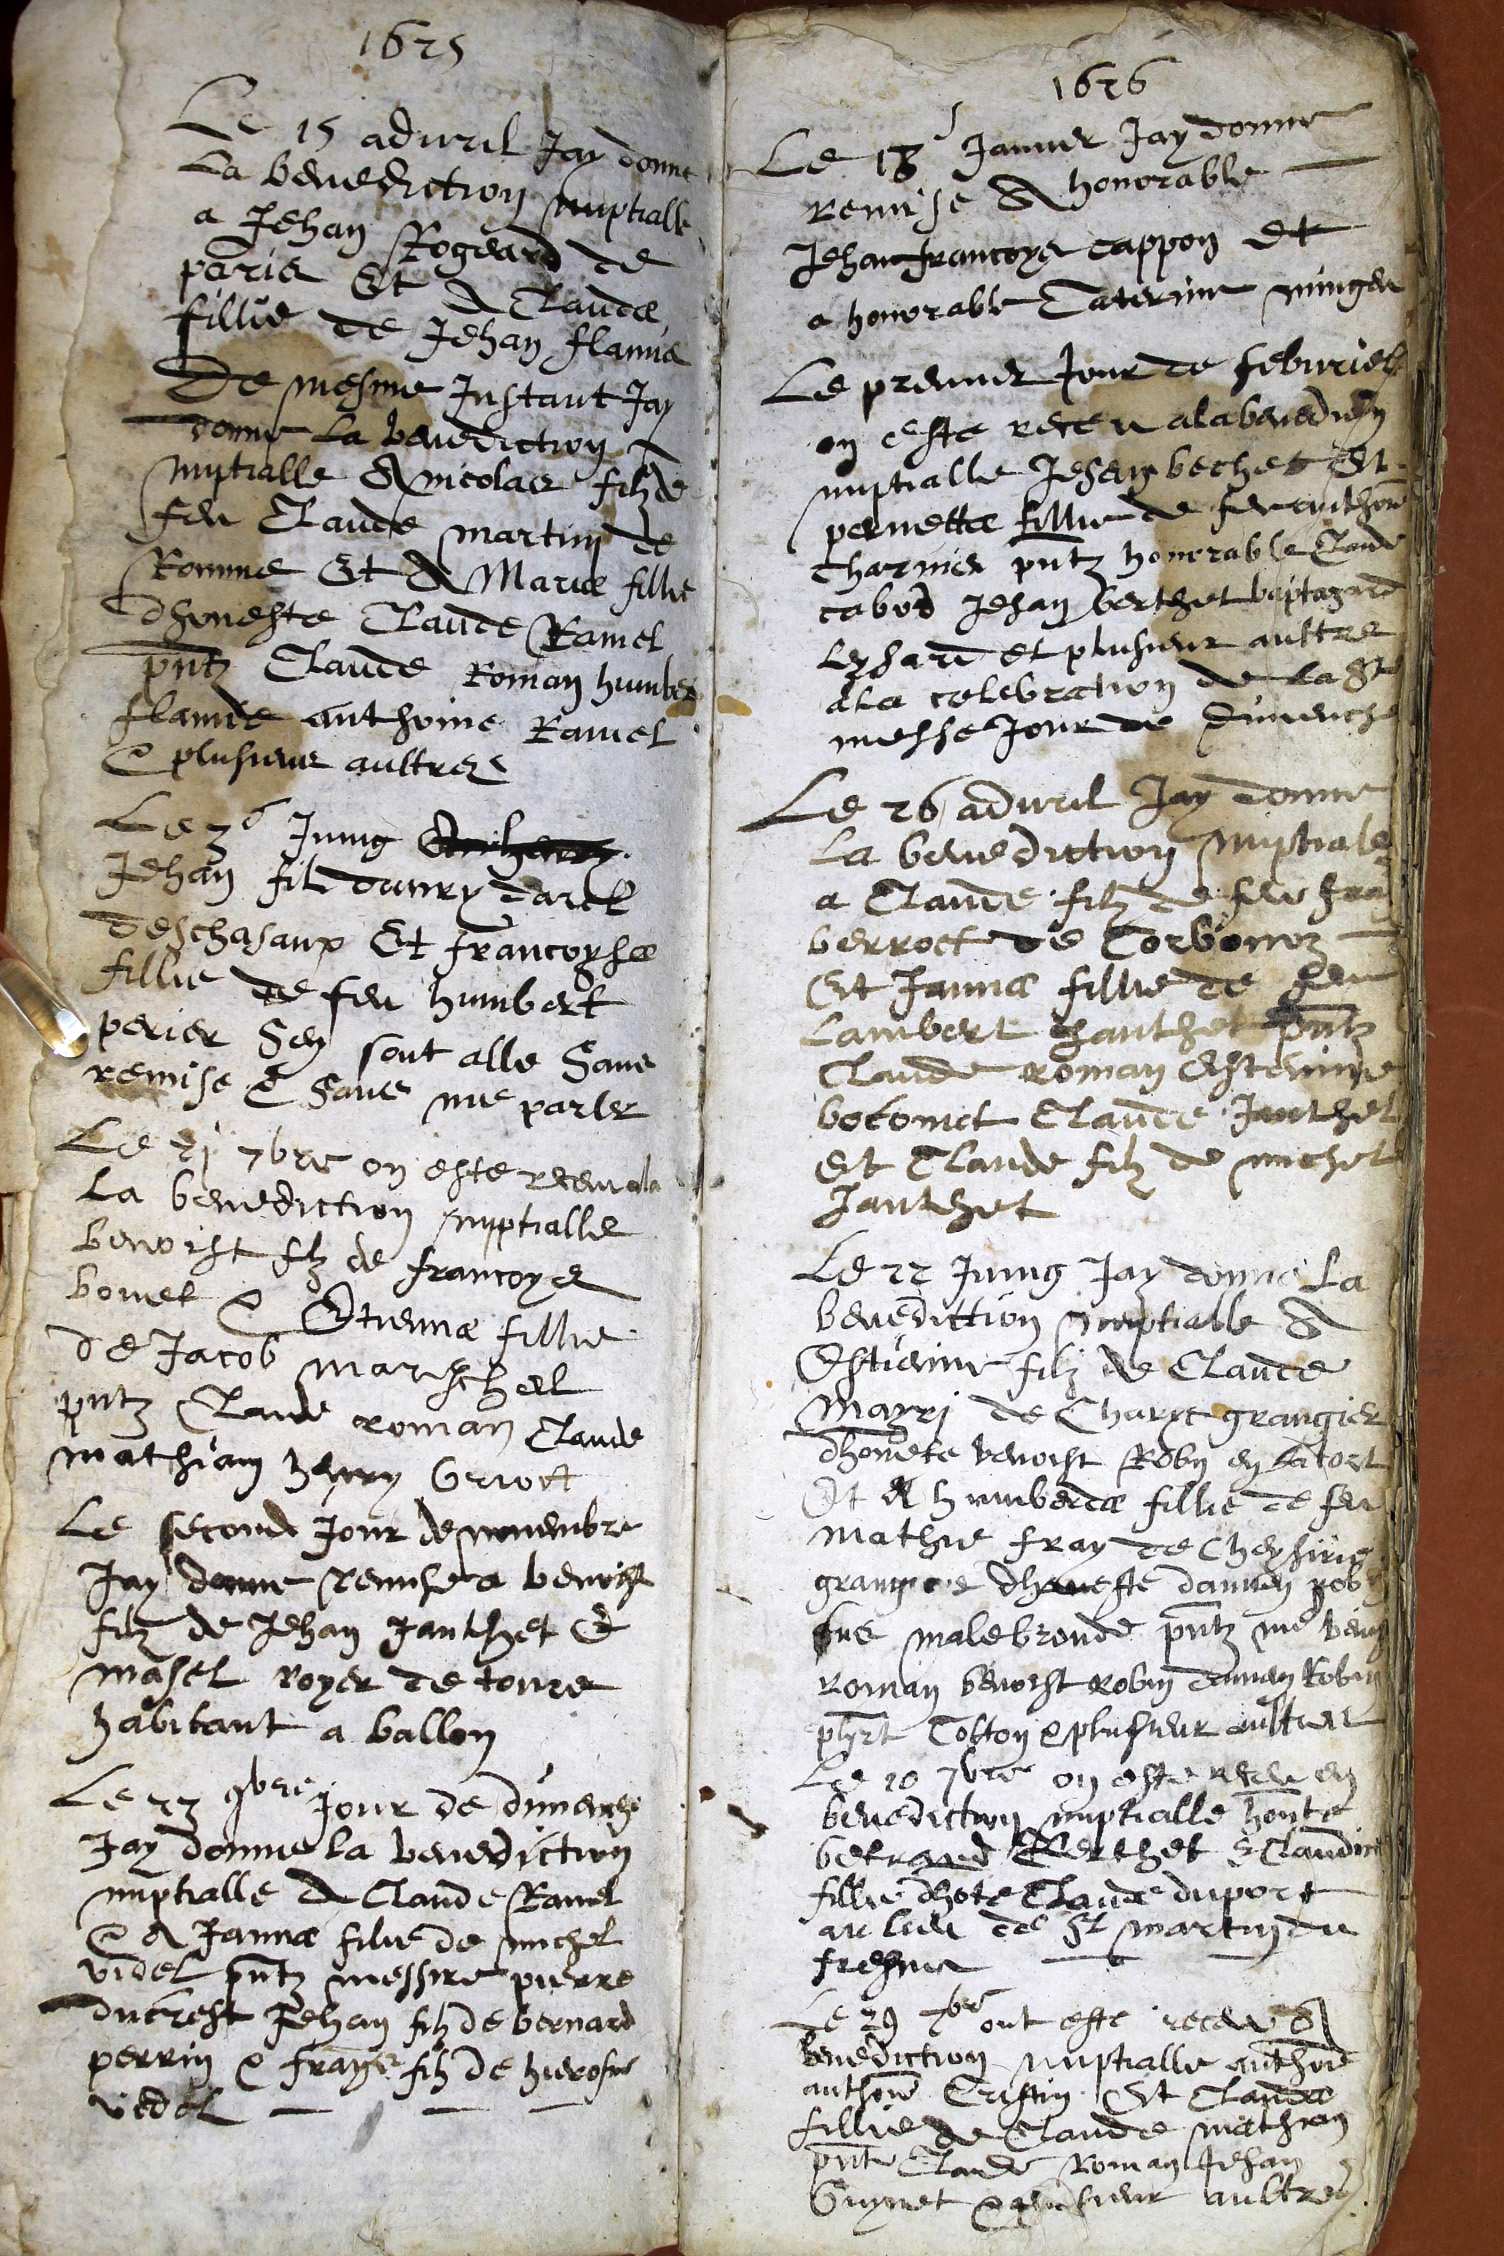 1625
Le 15 apvril Jay donne
La benediction nuptialle
a Jehan Rogeard de
paris Et A Clauda
fillie de Jehan flamia
De mesme Instant Jay
donne La benediction
nuptialle A nicolas filz de
feu Claude martin de
Romme Et A Maria fillie
dhoneste Claude Ramel
pntz Claude Roman humbert
flamie anthoine Ramel
& plusieurs aultres
Le 26 Juing
Jehan filz
deschasaux Et francoysa
fillie de feu humbert
perier Sen sont alle Sans
remise & Sans me parler
Le 21 7bre on este receu a la
La benediction nuptialle
benoist filz de francoys
bonet & Etienna fillie
de Jacob mareschel
pntz Claude roman Claude
mathian henry Griott
Le second Jour de nouembre
Jay donne remise a benoist
filz de Jehan Janthet &
masel royer de
habitant a ballon
Le 23 9bre Jour de dimenche
Jay donne la benediction
nuptialle A Claude Ramel
& A Janna filie de michel
videl pntz messire pierre
ducrest Jehan filz de bernard
perrin & frans filz de
videl
1626
Le 18 Januier Jay donne
remise A honorable
Jehan francoys cappon Et
a honorable Caterine
Le premier Jour de feburier
on este receu a la benediction
nuptialle Jehan bechet Et
pernetta fillie de feu anthoine
Charvier pntz honorable Claude
cabod Jehan berthet baptazard
Lyhard et plusieur aultre
a la celebration de La Ste
messe Jour de Dimenche
Le 26 apvril Jay donne
La benediction nuptialle
a Claude filz de feu fran
berroct de Corbonoz
Et Janna fillie de feu
Lambert Janthet pntz
Claude roman Estienne
botomet Claude Janthet
Et Claude filz de michel
Janthet
Le 22 Juing Jay donne La
benediction nuptialle A
Estienne filz de Claude
Mayri de Charix grangier
dhoneste benoist Robin en
Et A humberda fillie de feu
mathie fray de
dhoneste
malebronde pntz me
roman benoist robin Robin
Colton & plusieur aultres
Le 20 7bre on este receu en
benediction nuptialle honte
betrand Berthet & Claudine
fillie dhote Claude duport
au lieu de St martin du
fresne
Le 29 7bre ont este receu en
benediction nuptialle anthoine
anthoine Cristin Et Clauda
fillie de Claude mathian
pnt Claude Roman Jehan
Guynet & plusieur aultres